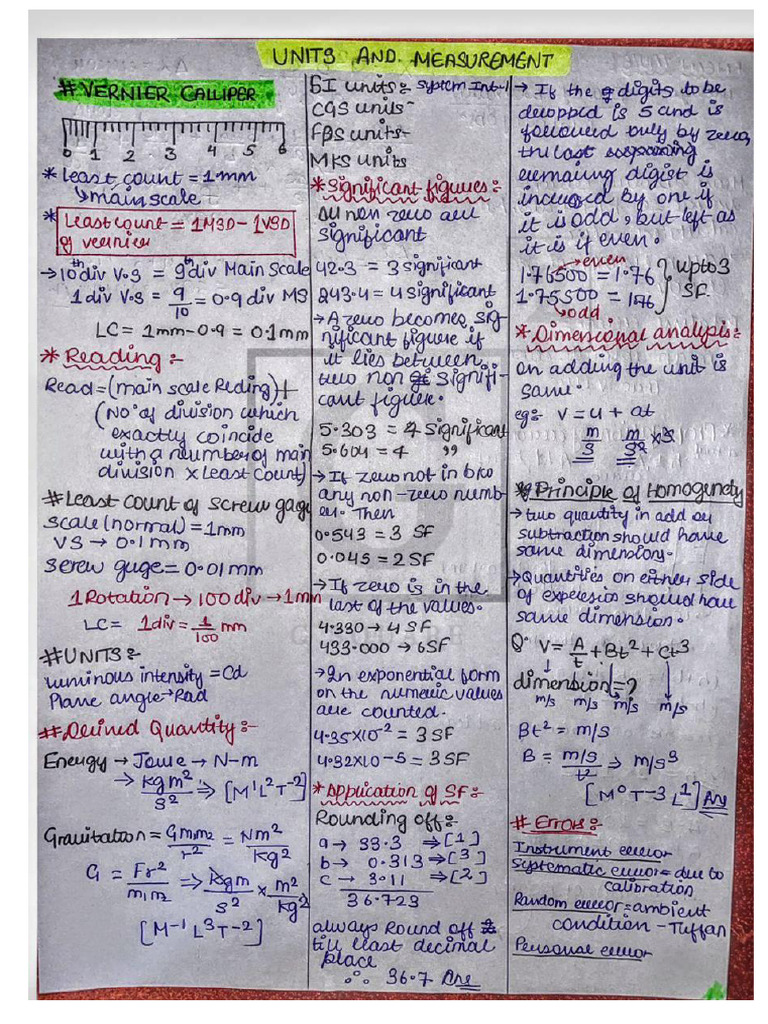 UNITS AND. MEASUREMENT
# VERNIER CALLIPER
0 1 2 3 4 5 6
* Least count = 1mm
↳ main scale
* Least count = 1MSD - 1VSD
of vernier
→ 10th div V.S = 9th div Main Scale
1 div V.S = 9/10 = 0.9 div MS
LC = 1mm - 0.9 = 0.1mm
* Reading :-
Read = (main scale Reding) +
(No. of division which
exactly coincide
with a number of main
division x Least Count)
# Least count of screw gage
scale (normal) = 1mm
VS → 0.1mm
Screw guge = 0.01mm
1 Rotation → 100 div → 1mm
LC = 1div = 1/100 mm
# UNITS :-
Luminous intensity = Cd
Plane angle → Rad
# Derived Quantity :-
Energy → Joule → N-m
→ kgm²/s² ⇒ [M¹L²T⁻²]
Gravitation = Gmm2/r² = Nm²/Kg²
G = Fr²/m1m2 ⇒ kgm/s² x m²/kg²
[M⁻¹L³T⁻²]
SI units :- System Int-l
CGS units-
FPS units-
MKS units
* Significant figures :-
All non zero are
significant
42.3 = 3 significant
243.4 = 4 significant
→ A zero becomes sig-
nificant figure if
it lies between
two non signifi-
cant figure.
5.303 = 4 significant
5.604 = 4 "
→ If zero not in b/w
any non-zero numb-
er. Then
0.543 = 3 SF
0.045 = 2 SF
→ If zero is in the
last of the values.
4.330 → 4 SF
433.000 → 6SF
→ In exponential form
on the numeric values
are counted.
4.35x10⁻² = 3 SF
4.32x10-5 = 3SF
* Application of SF :-
Rounding off :-
a → 33.3 ⇒ [1]
b → 0.313 ⇒ [3]
c → 3.11 ⇒ [2]
36.723
always Round off
till least decimal
place
∴ 36.7 Ans
→ If the digits to be
dropped is 5 and is
followed only by zero,
the last
remaing digist is
incresed by one if
it is odd, but left as
it is if even.
→ even
1.76500 = 1.76 } upto 3
1.75500 = 176 } SF.
↳ odd
* Dimensional analysis :-
on adding the unit is
same.
eg:- v = u + at
m/s m/s² x s
* Principle of Homogenety
→ two quantity in add or
subtraction should have
same dimensions.
→ Quantities on either side
of expression should have
same dimension.
Q. V = A/t + Bt² + Ct³
dimension = ?
m/s m/s m/s m/s
Bt² = m/s
B = m/s/t² ⇒ m/s³
[M⁰T-3 L¹] Ans
# Errors :-
Instrument error
Systematic error = due to
calibration
Random error = ambient
condition - Tuffan
Personal error